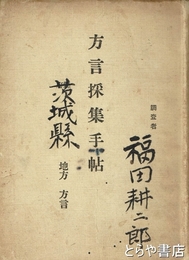 方言採集手帖
茨城縣
地方 方言
調査者
福田耕二郎
とらや書店